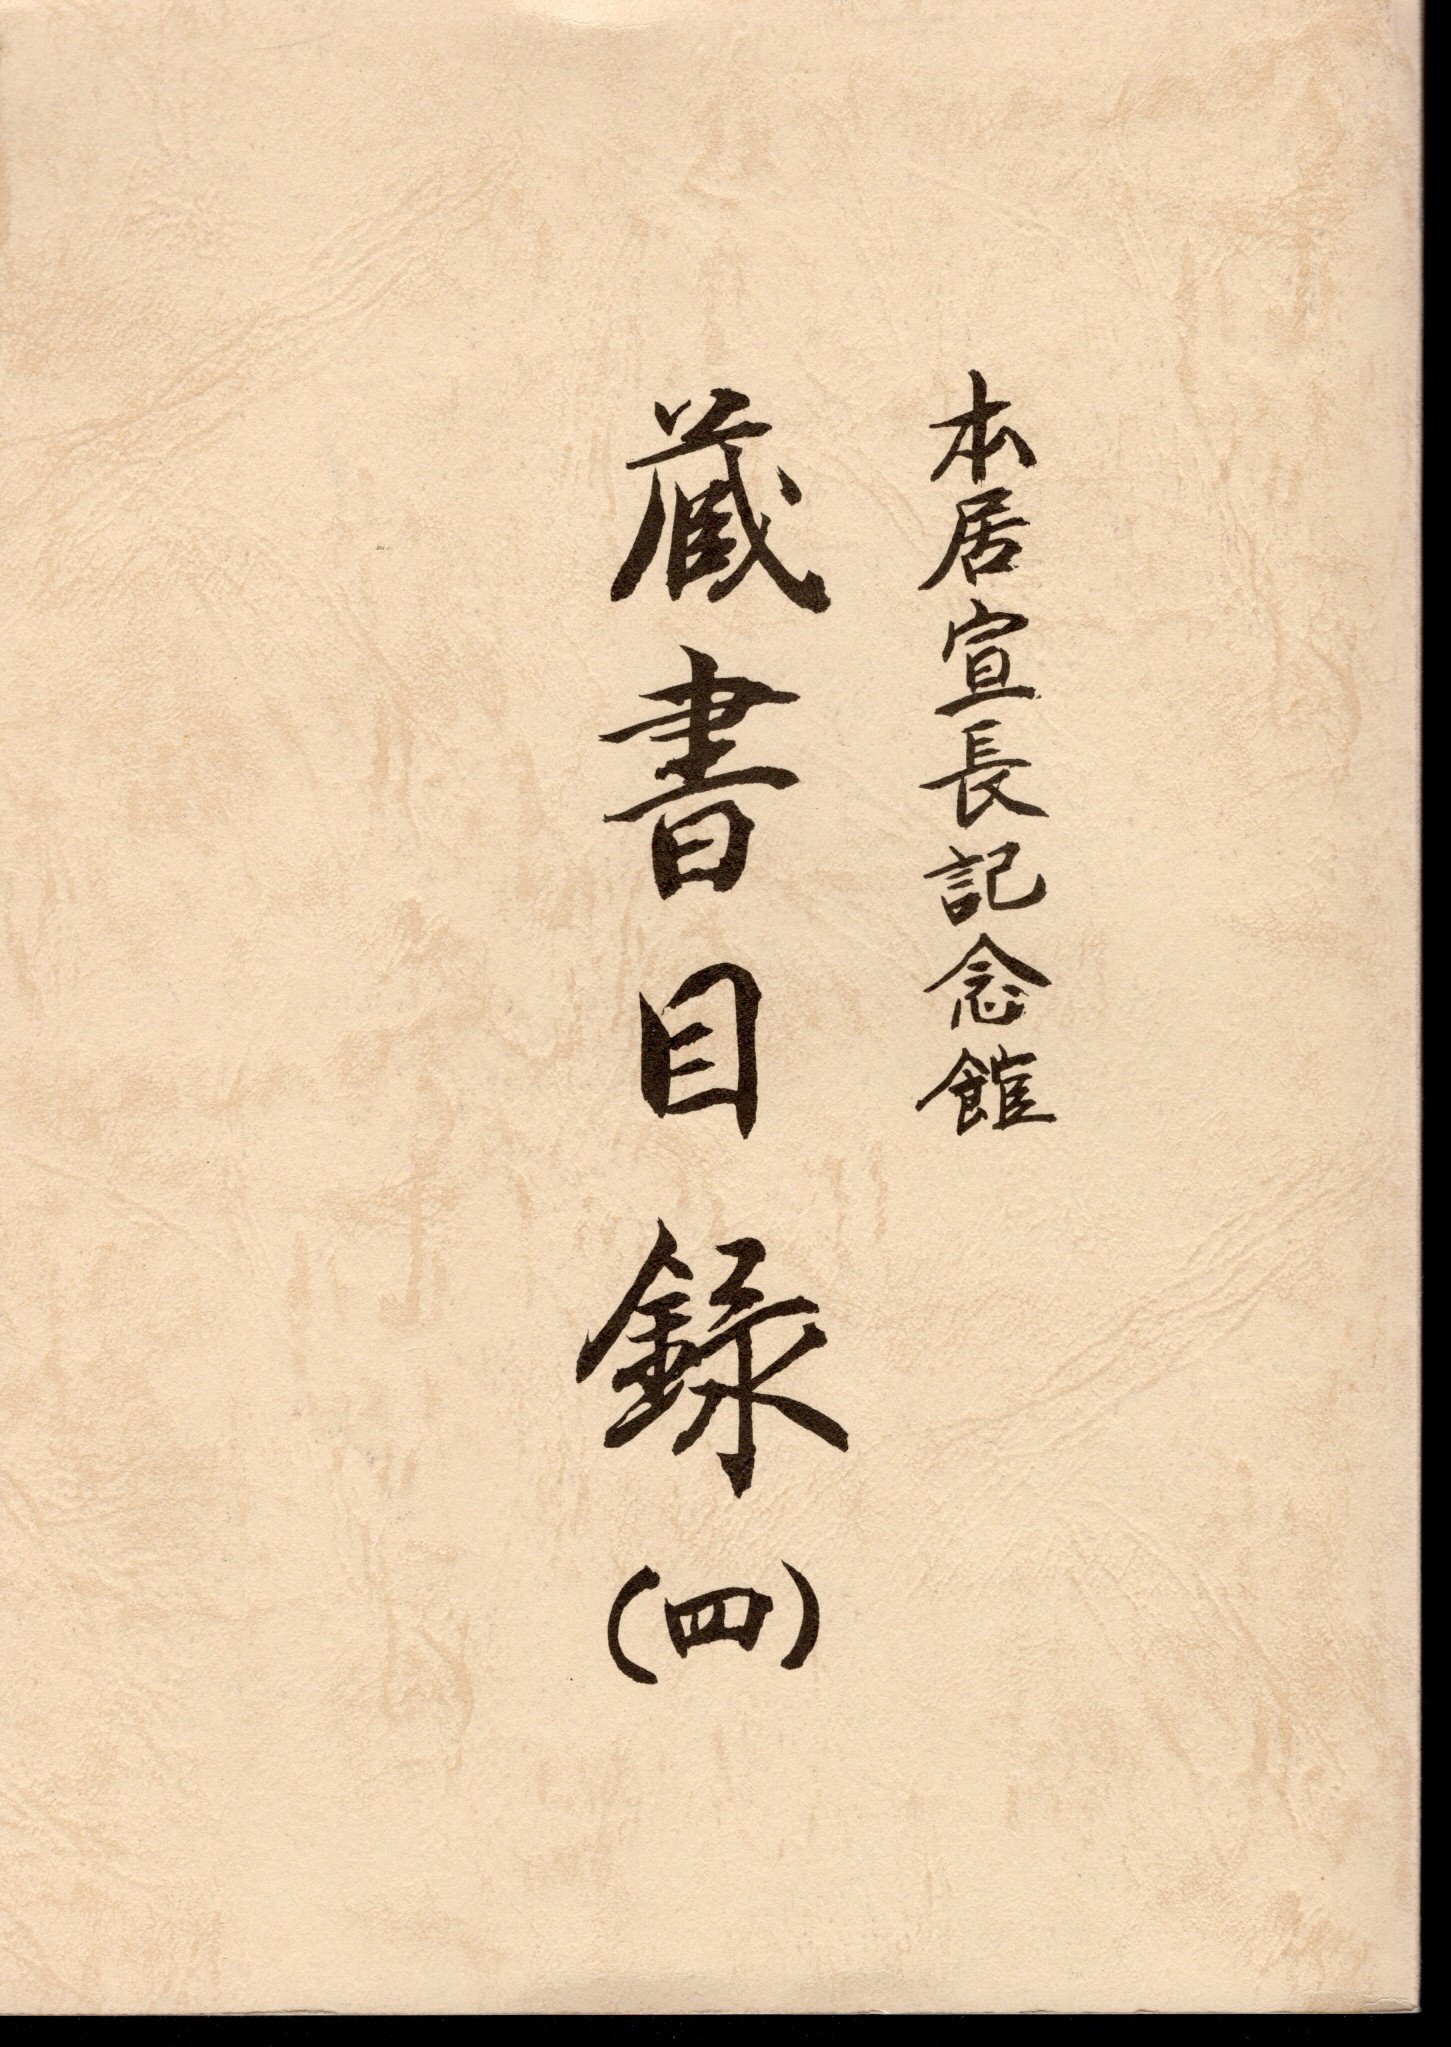 本居宣長記念館
蔵書目録(四)